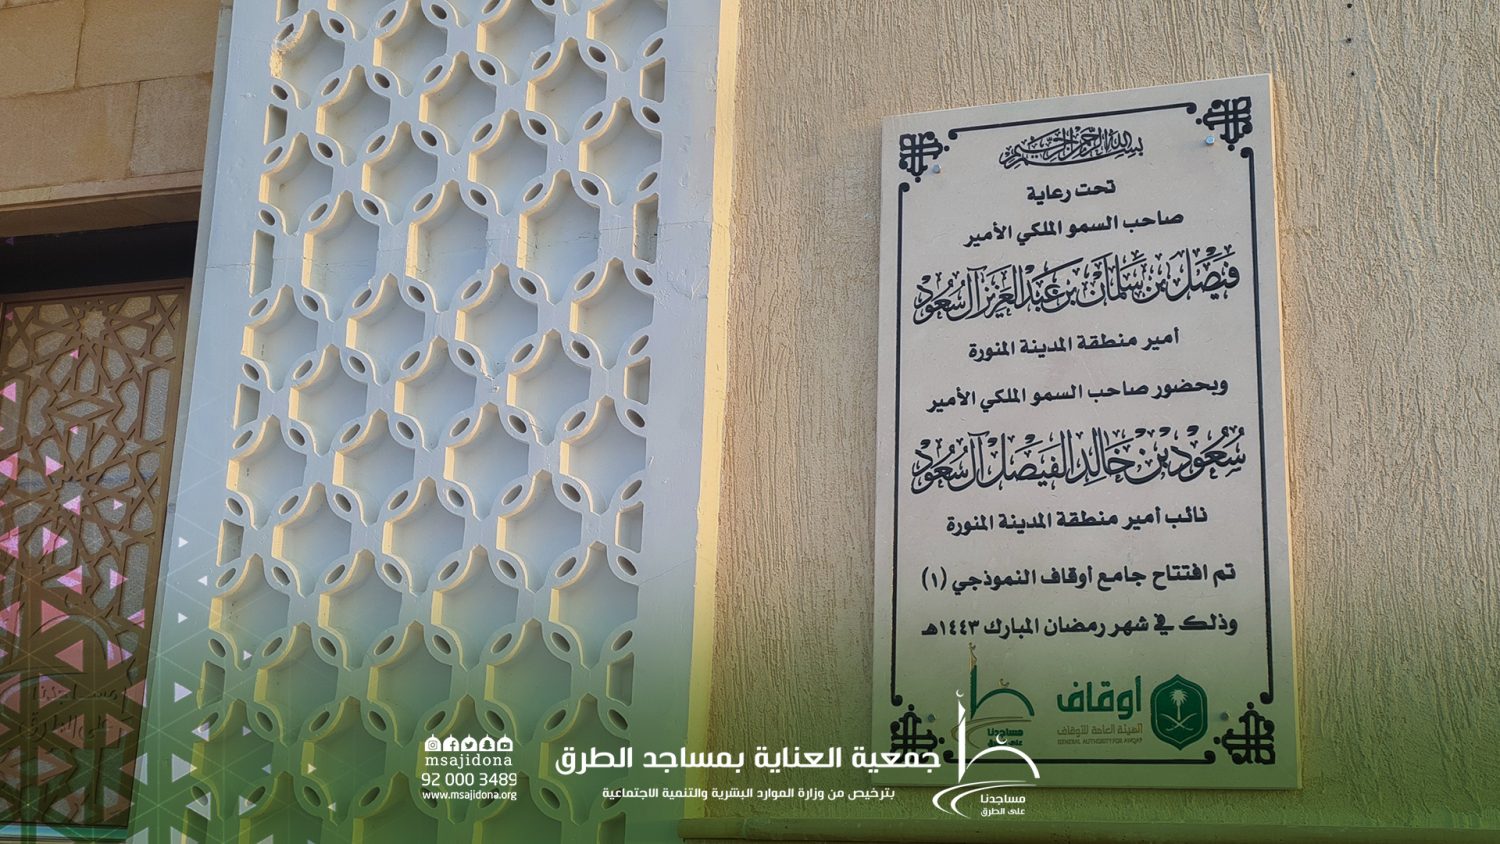 بسم الله الرحمن الرحيم
تحت رعاية
صاحب السمو الملكي الأمير
فيصل بن سلمان بن عبد العزيز آل سعود
أمير منطقة المدينة المنورة
وبحضور صاحب السمو الملكي الأمير
سعود بن خالد الفيصل آل سعود
نائب أمير منطقة المدينة المنورة
تم افتتاح جامع أوقاف النموذجي (١)
وذلك في شهر رمضان المبارك ١٤٤٣هـ
أوقاف
الهيئة العامة للأوقاف
GENERAL AUTHORITY FOR AWQAF
مساجدنا
على الطرق
جمعية العناية بمساجد الطرق
بترخيص من وزارة الموارد البشرية والتنمية الاجتماعية
مساجدنا
على الطرق
msajidona
92 000 3489
www.msajidona.org
مساجدنا
على الطرق